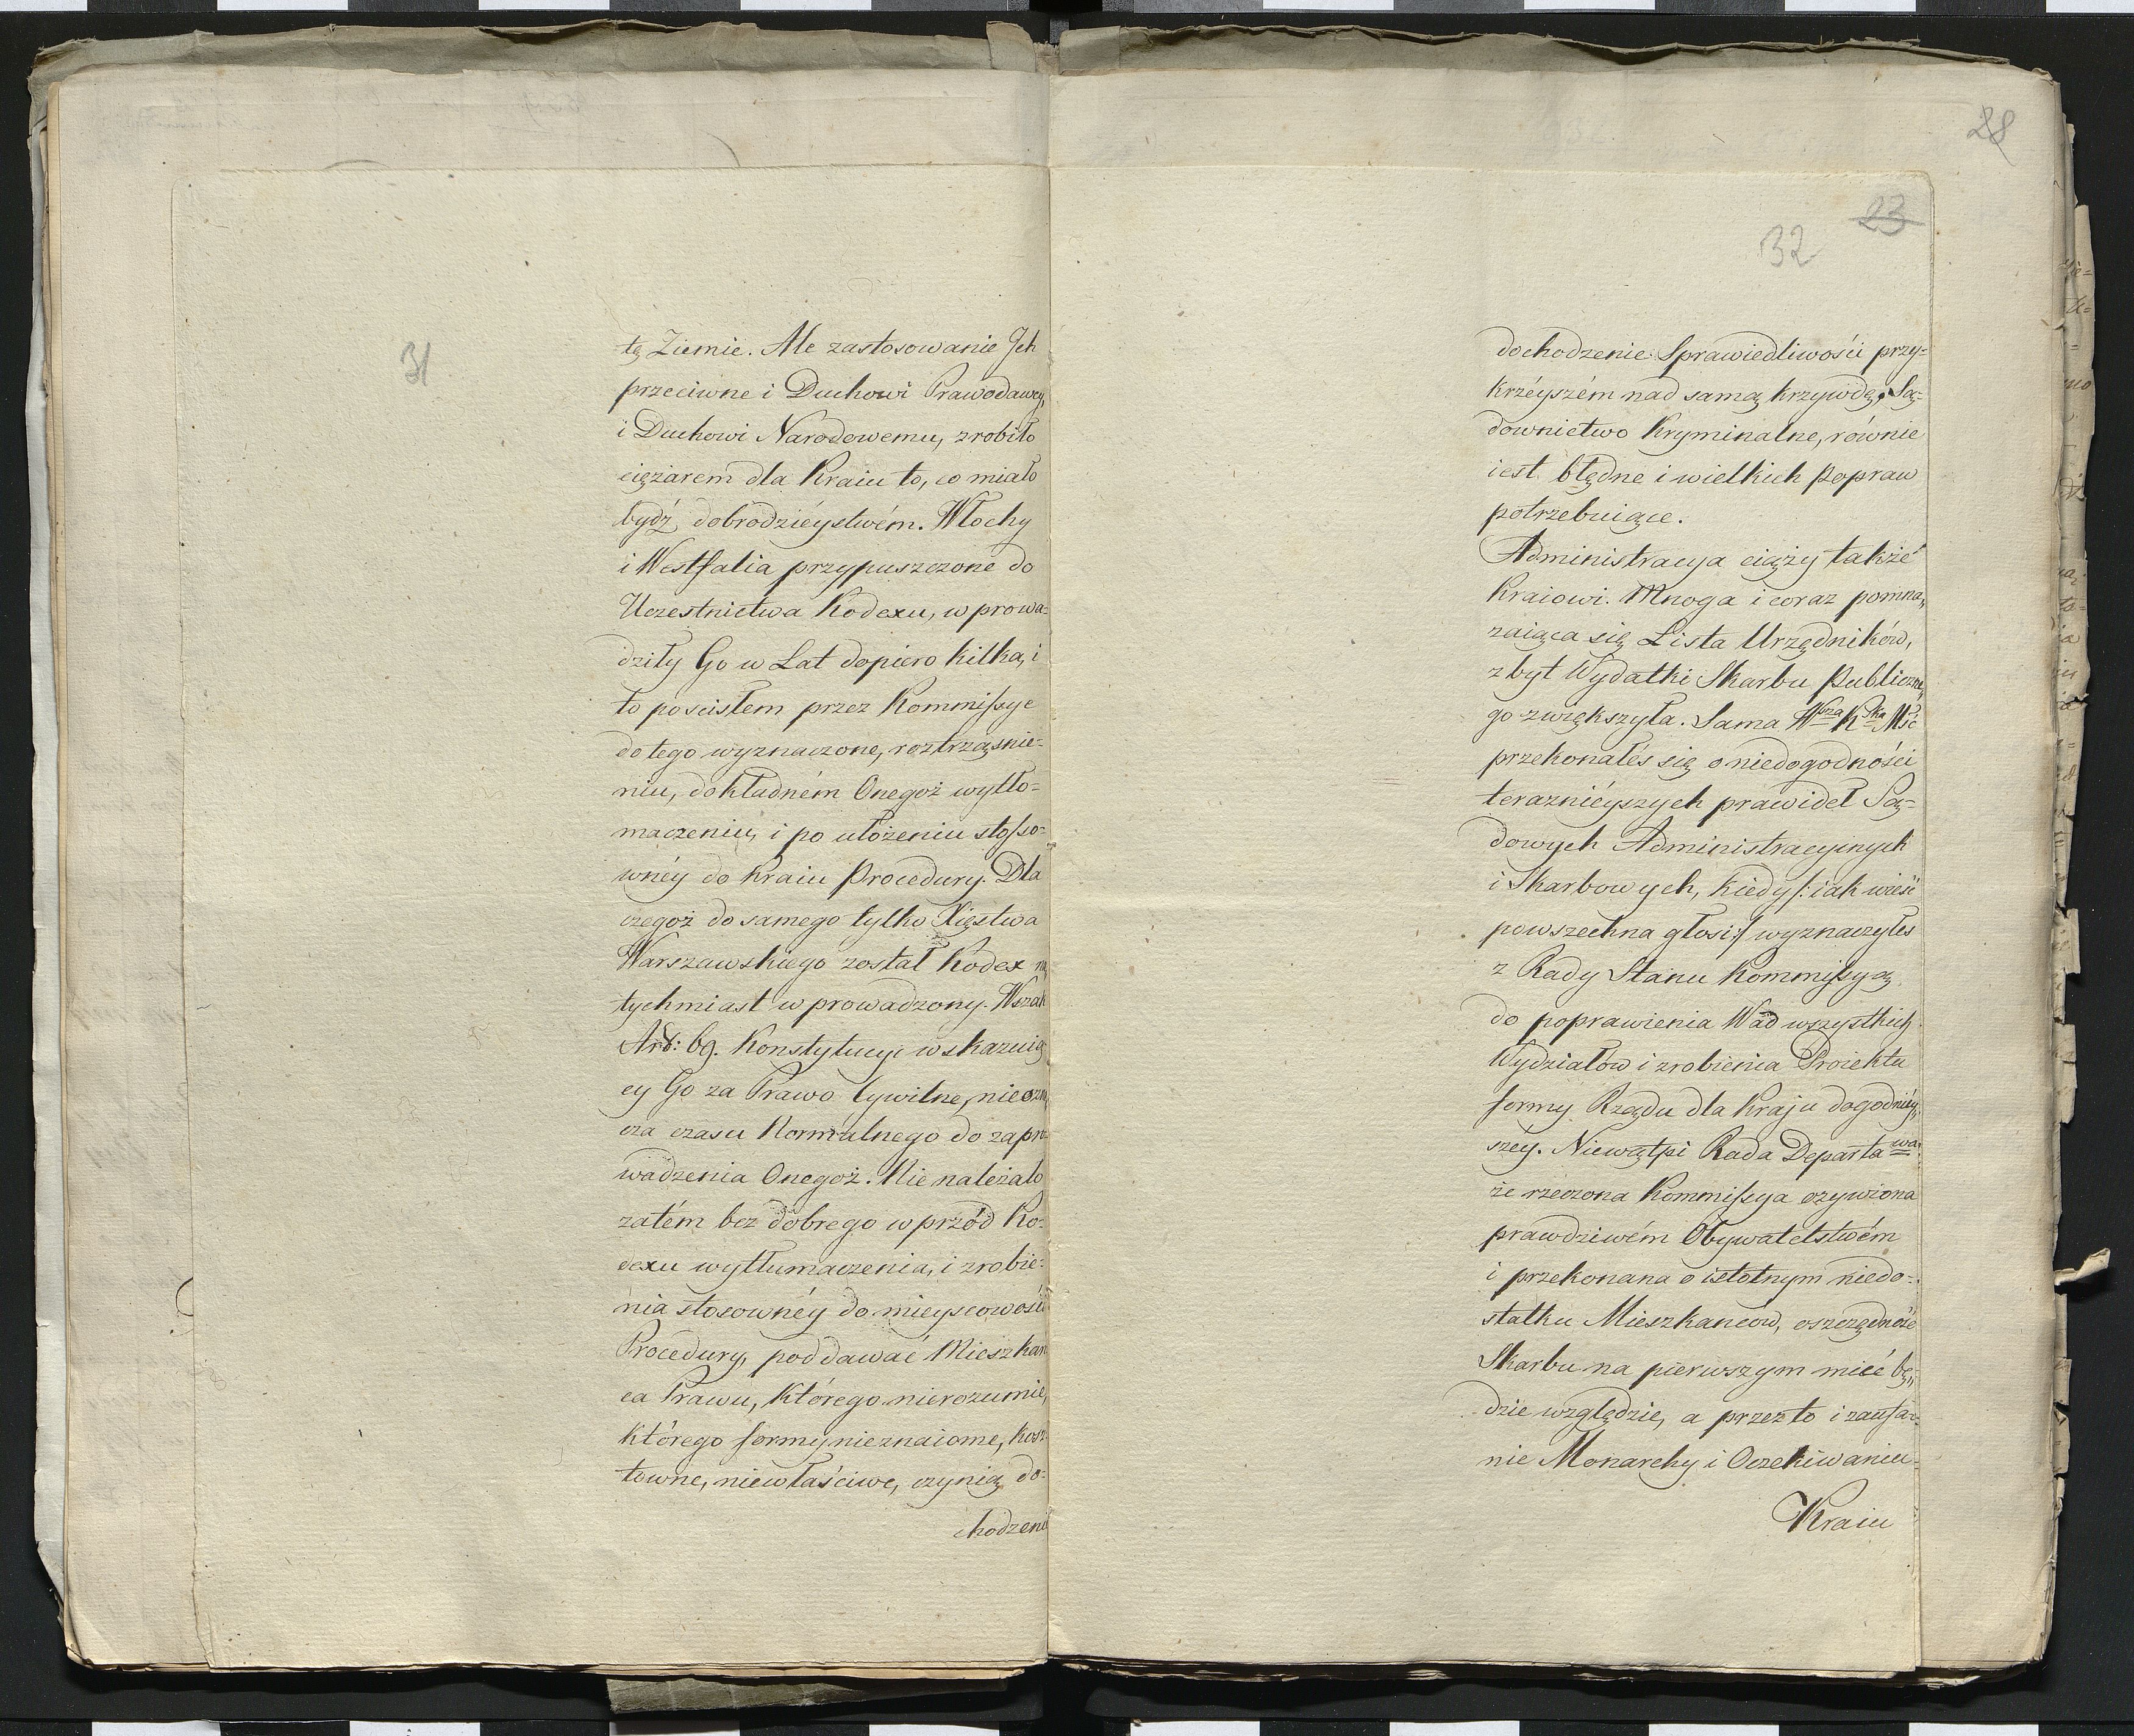 31
tę Ziemie. Ale zastosowanie Jch
przeciwne i Duchowi Prawodawcy,
i Duchowi Narodowemu, zrobiło
ciężarem dla Kraiu to, co miało
bydź dobrodziéystwém. Włochy
i Westfalia przypuszczone do
Uczestnictwa Kodexu, w prowa=
dziły Go w Lat dopiero kilka, i
to pościsłem przez Kommissye
do tego wyznaczone, roztrząśnie=
niu, dokładném Onegoż wytło=
maczeniu, i po ułożeniu stosso=
wnéy do Kraiu Procedury. Dla
czegoż do samego tylko Xięstwa
Warszawskiego został Kodex na
tychmiast w prowadzony. Wszak
Art: 69. Konstytucyi wskazuią
cy Go za Prawo Cywilne, nieozna
cza czasu Normalnego do zapro
wadzenia Onegoż. Nie należało
zatém bez dobrego w przód Ko=
dexu wytłumaczenia, i zrobie=
nia stosownéy do mieyscowości
Procedury, poddawać Mieszkań
ca Prawu, którego nierozumie,
którego formy nieznaiome, kosz
towne, niewłaściwe, czynią do=
chodzenie
28
23
32
dochodzenie Sprawiedliwości przy=
krzéyszém nad samą krzywdę. Są=
downictwo Kryminalne, równie
iest błędne i wielkich popraw
potrzebuiące.
Administracya ciąży także
Kraiowi. Mnoga i coraz pomna„
zaiąca się Lista Urzędników,
zbyt Wydatki Skarbu Publiczne„
go zwiększyła. Sama Wsza Kska Mść
przekonałeś się o niedogodności
teraznéyszych prawideł Są=
dowych Administracyinych
i Skarbowych, kiedy /: iak wieść
powszechna głosi :/ wyznaczyłeś
z Rady Stanu Kommissyą
do poprawienia Wad wszystkich
Wydziałów i zrobienia Proiektu
formy Rządu dla Kraju dogodniéy„
széy. Niewątpi Rada Departawa
że rzeczona Kommissya ożywiona
prawdziwém Obywatelstwém
i przekonana o istotnym niedo=
statku Mieszkanców, oszczędność
Skarbu na pierwszym mieć bę„
dzie względzie, a przez to i zaufa=
nie Monarchy i Oczekiwaniu
Kraiu